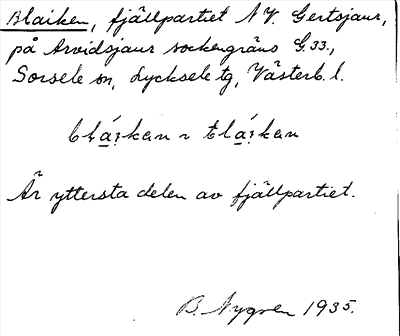 Blaiken, fjällpartiet NV. Gertsjaur,
på Arvidsjaur sockengräns G.33.,
Sorsele sn, Lycksele tg, Västerb. l.
Är yttersta delen av fjällpartiet.
B. Nygren 1935.